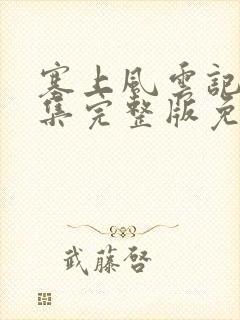 塞上風雲記
集完整版免
武藤啓